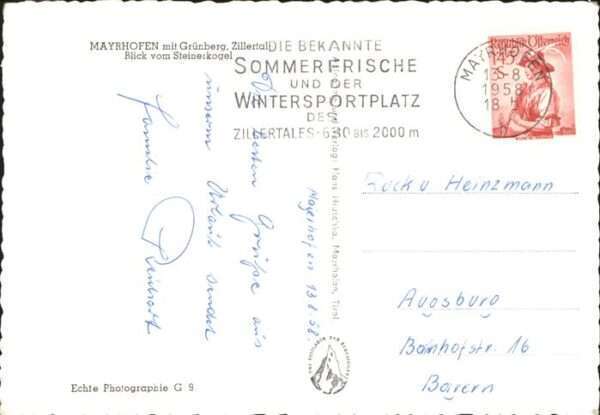 MAYRHOFEN mit Grünberg, Zillertal
Blick vom Steinerkogel
DIE BEKANNTE
SOMMERFRISCHE
UND DER
WINTERSPORTPLATZ
DES
ZILLERTALES·630 BIS 2000 m
MAYRHOFEN
13.-8
1958
18 H
Republik Österreich
1.45
Mayrhofen 13.8.58.
Die besten Grüße aus
unserm Urlaub sendet
Familie
Ruck u Heinzmann
Augsburg
Bahnhofstr. 16
Bayern
Mayrhofen, Tirol
Echte Photographie G 9